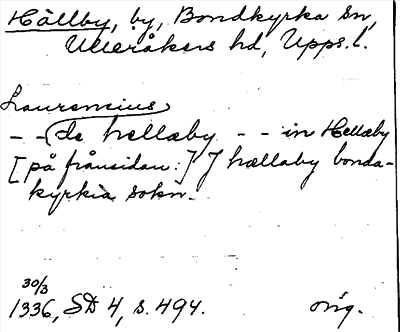 Hällby, by, Bondkyrka sn,
Ulleråkers hd, Upps. l.
Laurencius
- - de hellæby - - in Hellæby
[på frånsidan:] J hællaby bonda-
kyrkia sokn.
30/3
1336, SD 4, s. 494. orig.